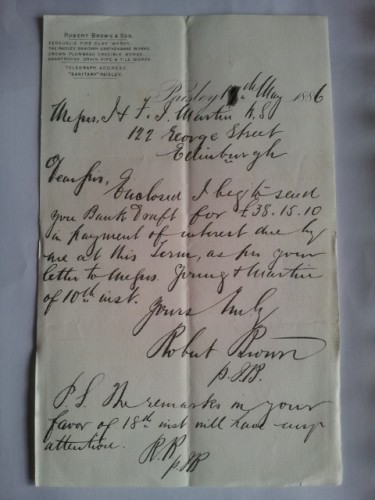 ROBERT BROWN & SON,
FERGUSLIE FIRE CLAY WORKS,
CROWN PLUMBAGO CRUCIBLE WORKS,
DRAIN PIPE & TILE WORKS.
TELEGRAPH ADDRESS
"SANITARY" PAISLEY.
Paisley May 1886
Messrs, J & F. J. Martin W.S
122 George Street
Edinburgh
Dear Sirs,
Enclosed I beg to send
you Bank Draft for £38.15.10
in payment of interest due by
me at this Term, as per your
letter to Messrs. Young & Martin
of 10th inst.
Yours truly
Robert Brown
p. JR.
P.S. The remarks in your
favor of 18th inst will have my
attention.
R.B.
p JR